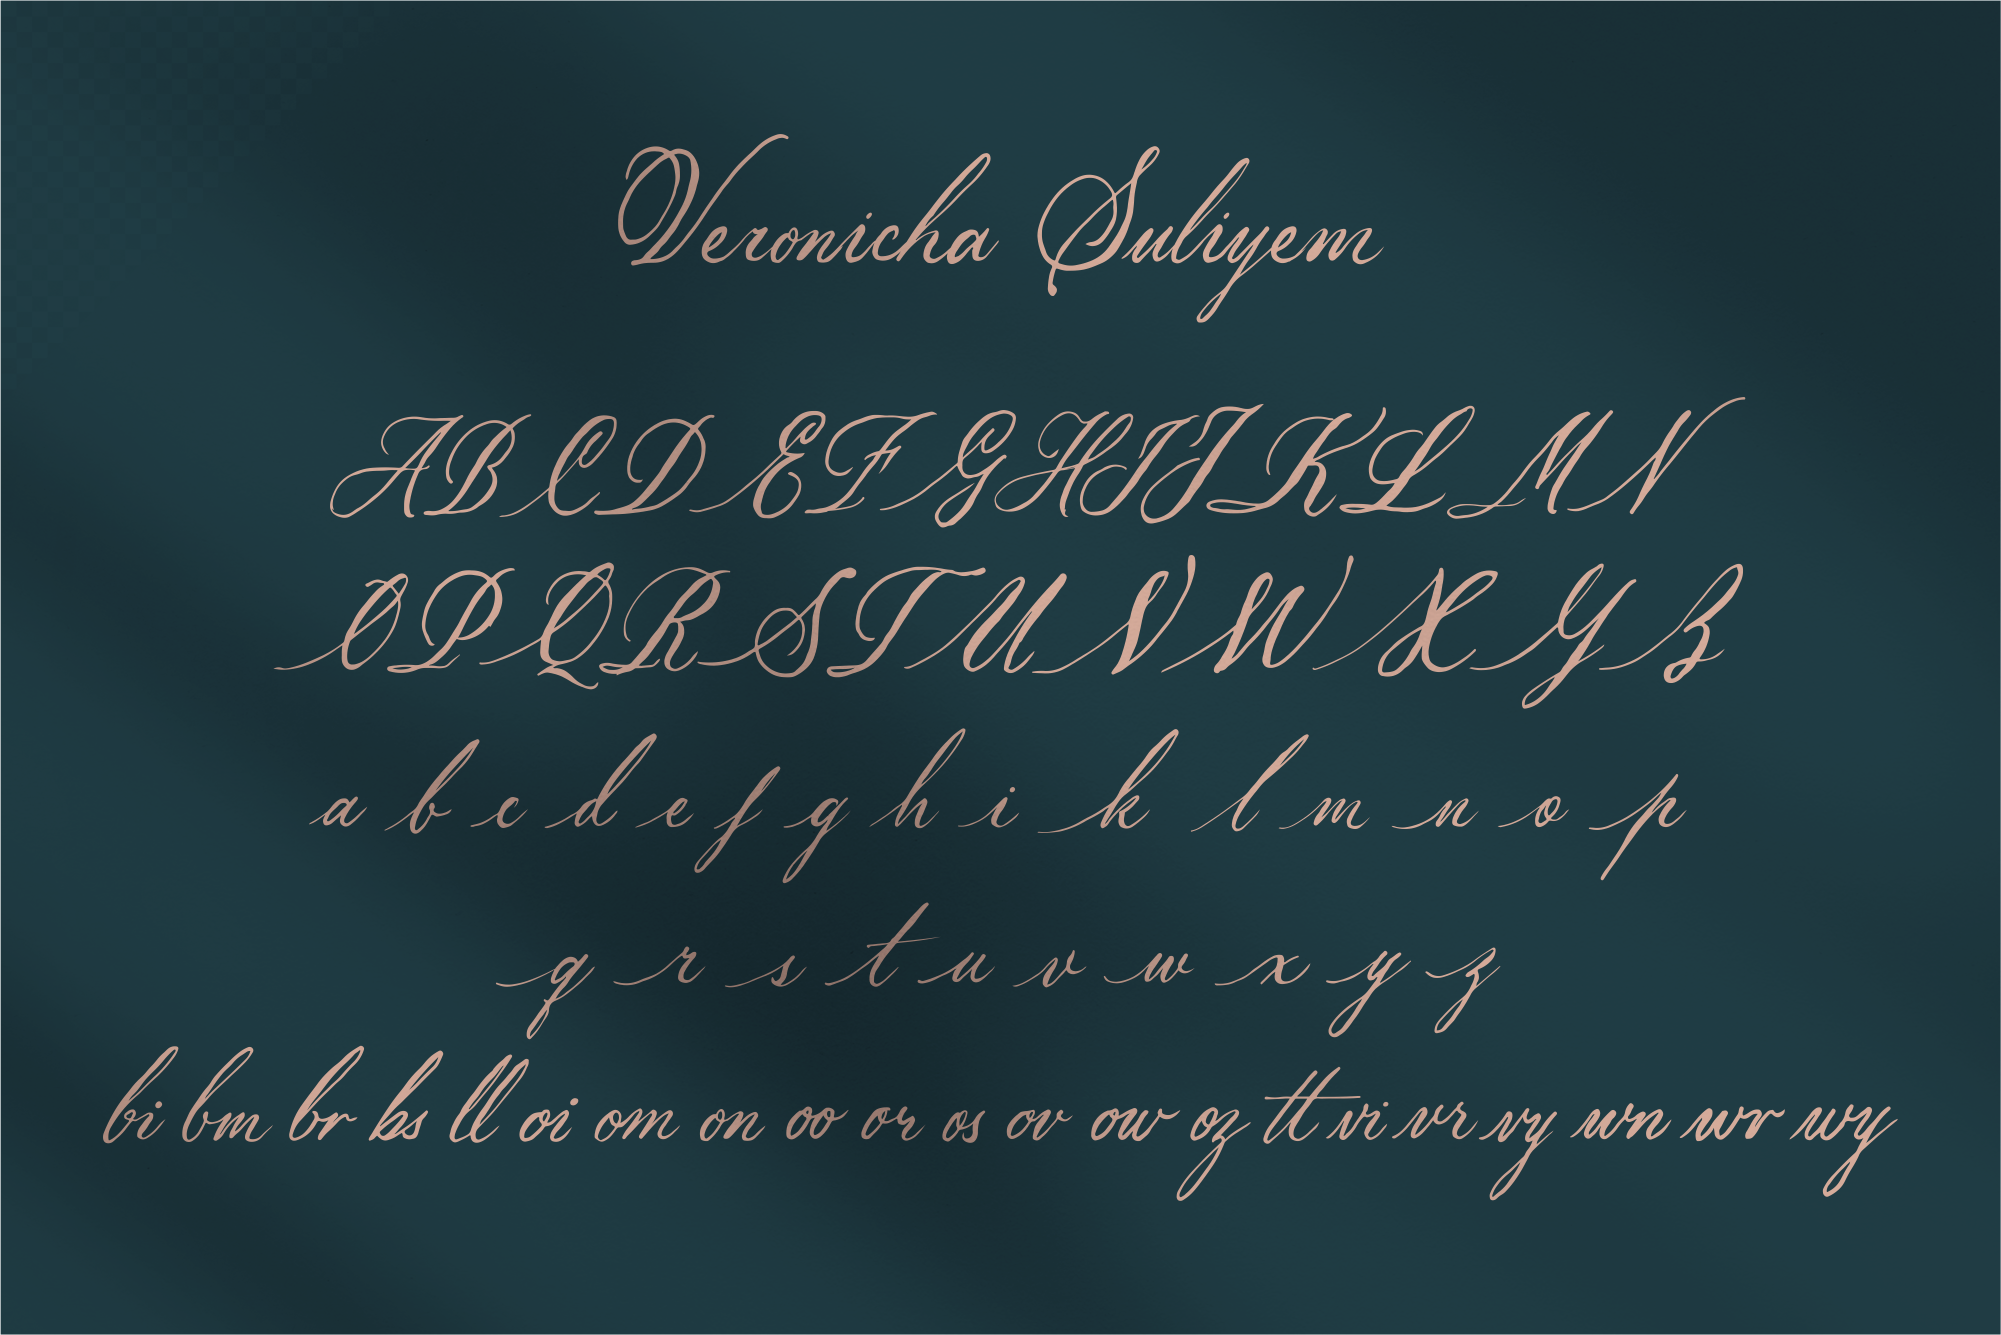 Veronicha Suliyem
ABCDEFGHIJKLMN
OPQRSTUVWXYZ
a b c d e f g h i k l m n o p
q r s t u v w x y z
bi bm br bs ll oi om on oo or os ov ow oz tt vi vr vy wn wr wy